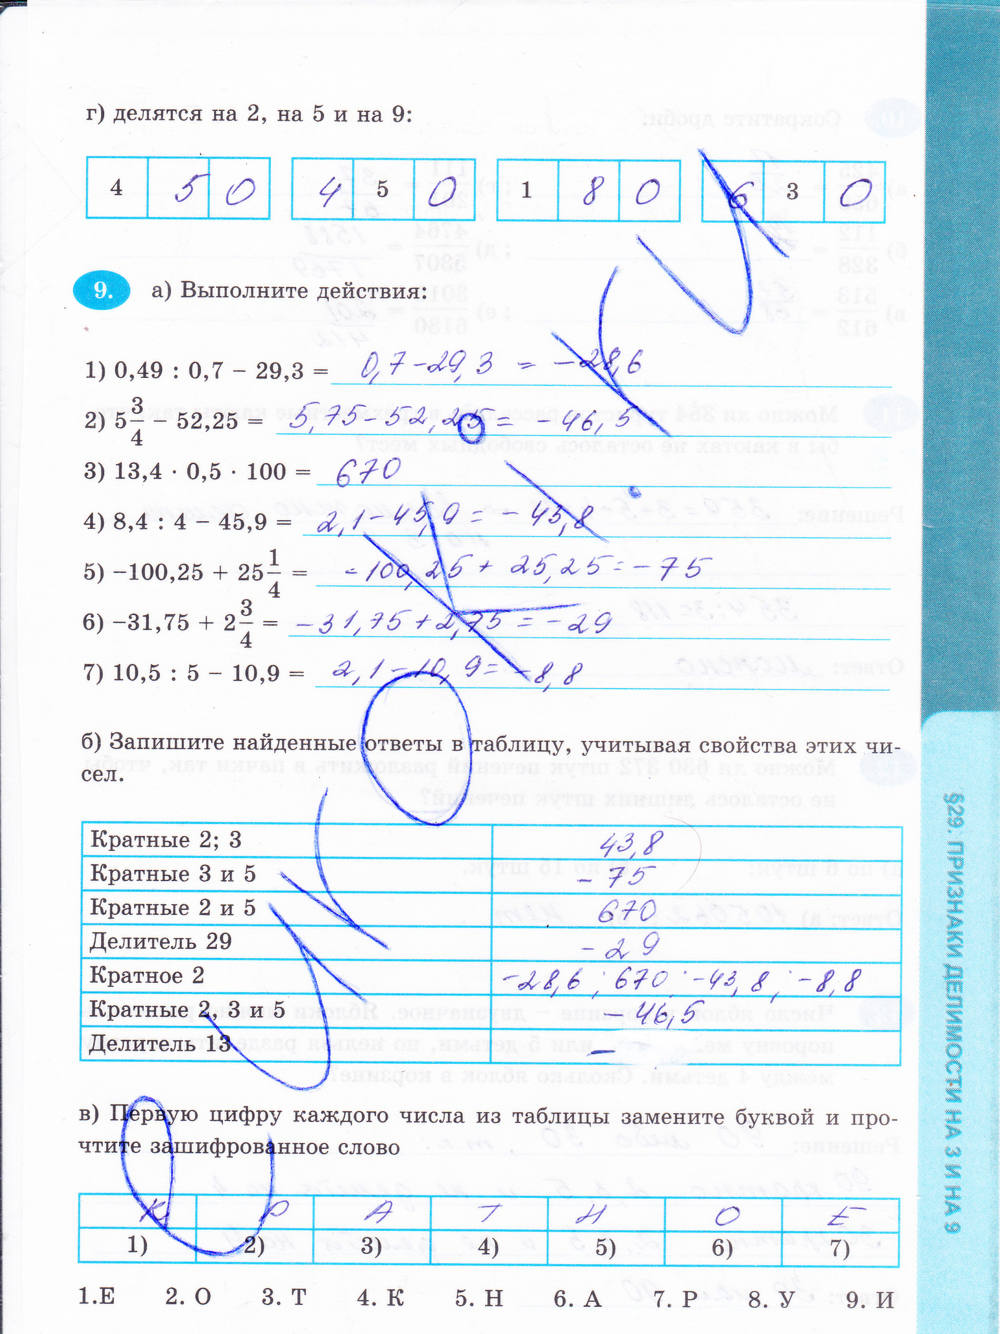 г) делятся на 2, на 5 и на 9:
4 5 0 4 5 0 1 8 0 6 3 0
9. а) Выполните действия:
1) 0,49 : 0,7 − 29,3 = 0,7 − 29,3 = −28,6
2) 5 3/4 − 52,25 = 5,75 − 52,25 = −46,5
3) 13,4 · 0,5 · 100 = 670
4) 8,4 : 4 − 45,9 = 2,1 − 45,9 = −43,8
5) −100,25 + 25 1/4 = −100,25 + 25,25 = −75
6) −31,75 + 2 3/4 = −31,75 + 2,75 = −29
7) 10,5 : 5 − 10,9 = 2,1 − 10,9 = −8,8
б) Запишите найденные ответы в таблицу, учитывая свойства этих чи-
сел.
Кратные 2; 3 43,8
Кратные 3 и 5 −75
Кратные 2 и 5 670
Делитель 29 −29
Кратное 2 −28,6; 670; −43,8; −8,8
Кратные 2, 3 и 5 −46,5
Делитель 13 −
в) Первую цифру каждого числа из таблицы замените буквой и про-
чтите зашифрованное слово
К Р А Т Н О Е
1) 2) 3) 4) 5) 6) 7)
1.Е 2. О 3. Т 4. К 5. Н 6. А 7. Р 8. У 9. И
§29. ПРИЗНАКИ ДЕЛИМОСТИ НА 3 И НА 9